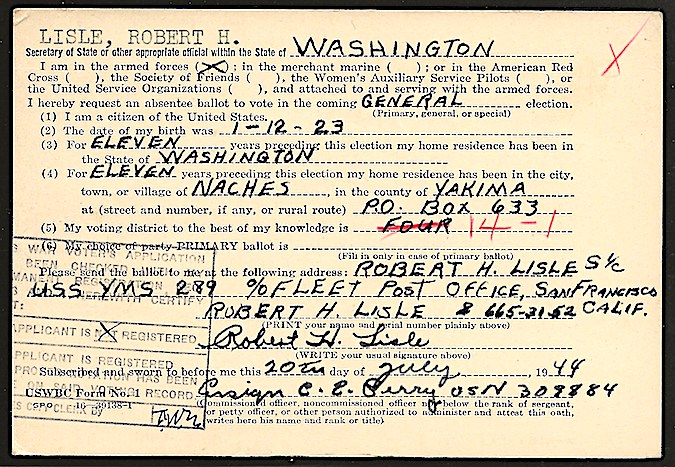 LISLE, ROBERT H.
Secretary of State or other appropriate official within the State of WASHINGTON
I am in the armed forces (X); in the merchant marine ( ); or in the American Red
Cross ( ), the Society of Friends ( ), the Women's Auxiliary Service Pilots ( ), or
the United Service Organizations ( ), and attached to and serving with the armed forces.
I hereby request an absentee ballot to vote in the coming GENERAL election.
(Primary, general, or special)
(1) I am a citizen of the United States.
(2) The date of my birth was 1-12-23
(3) For ELEVEN years preceding this election my home residence has been in
the State of WASHINGTON
(4) For ELEVEN years preceding this election my home residence has been in the city,
town, or village of NACHES, in the county of YAKIMA
at (street and number, if any, or rural route) P.O. BOX 633
(5) My voting district to the best of my knowledge is FOUR 14-1
(6) My choice of party PRIMARY ballot is
(Fill in only in case of primary ballot)
Please send the ballot to me at the following address: ROBERT H. LISLE S1/c
USS YMS 289 c/o FLEET POST OFFICE, SAN FRANCISCO
ROBERT H. LISLE 8 665-31-52 CALIF.
(PRINT your name and serial number plainly above)
Robert H. Lisle
(WRITE your usual signature above)
Subscribed and sworn to before me this 20TH day of July, 1944
Ensign C. E. Perry USN 309884
USWBC Form No. 1
(Commissioned officer, noncommissioned officer not below the rank of sergeant,
or petty officer, or other person authorized to administer and attest this oath,
writes here his name and rank or title)
GPO 16-39138-1
WAR VOTER'S APPLICATION
BEEN CHECKED
HEREWITH CERTIFY
APPLICANT IS NOT REGISTERED
APPLICANT IS REGISTERED
HAS BEEN
ON SAID VOTER RECORD
CLERK BY